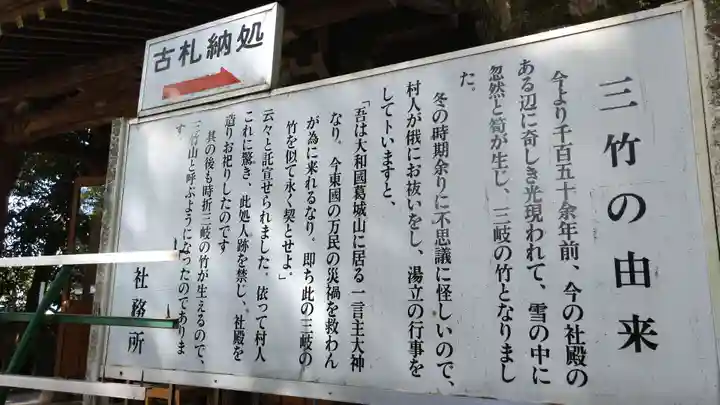 古札納処
三竹の由来
今より千百五十余年前、今の社殿の
ある辺に奇しき光現われて、雪の中に
忽然と筍が生じ、三岐の竹となりまし
た。
冬の時期余りに不思議に怪しいので、
村人が俄にお祓いをし、湯立の行事を
して卜いますと、
「吾は大和國葛城山に居る一言主大神
なり。今東國の万民の災禍を救わん
が為に来れるなり。即ち此の三岐の
竹を似て永く契とせよ」
云々と託宣せられました。依って村人
これに驚き、此処人跡を禁じ、社殿を
造りお祀りしたのです
其の後も時折三岐の竹が生えるので、
三竹山と呼ぶようになったのでありま
す
社務所